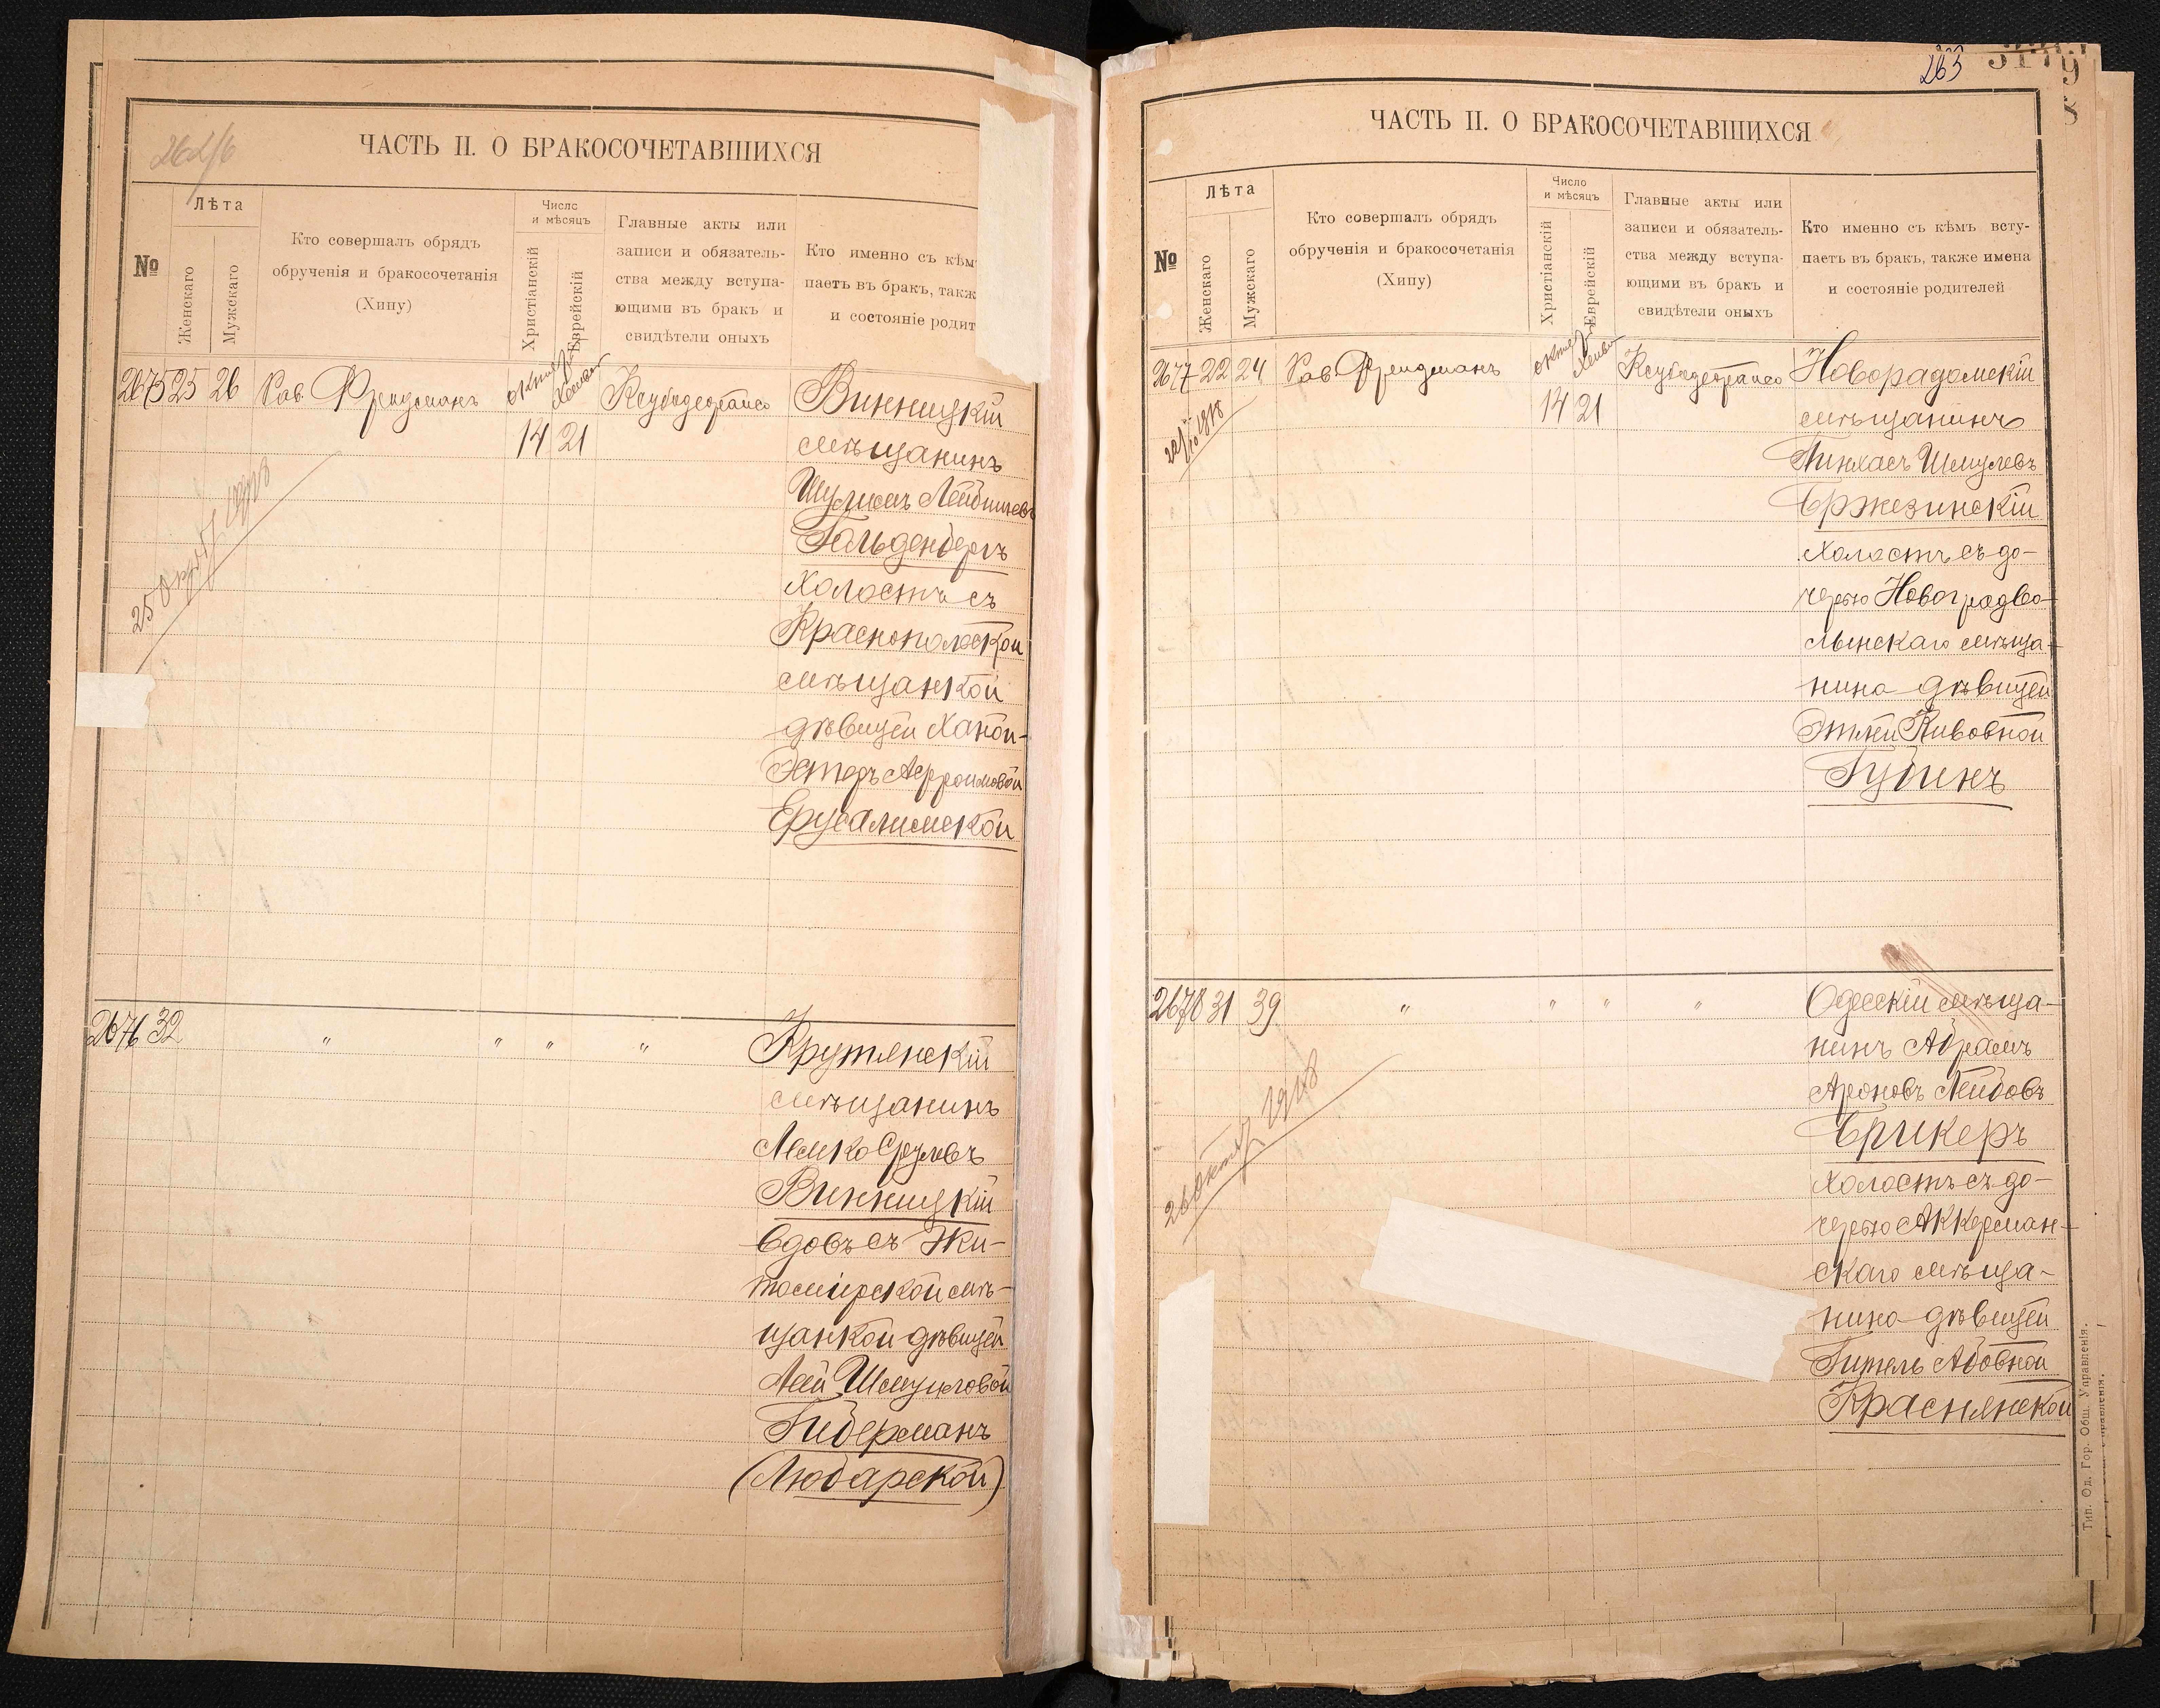 262/6
ЧАСТЬ II. О БРАКОСОЧЕТАВШИХСЯ
№
Лѣта
Женскаго
Мужскаго
Кто совершалъ обрядъ
обрученія и бракосочетанія
(Хипу)
Число
и мѣсяцъ
Христіанскій
Еврейскій
Главные акты или
записи и обязатель-
ства между вступа-
ющими въ бракъ и
свидѣтели оныхъ
Кто именно съ кѣм
паетъ въ бракъ, такж
и состояніе родит
2675 25 26 Рав. Фрейдманъ
14 21
Винницкій
мѣщанинъ
Гольденбергъ
Холостъ съ
Краснополоской
мѣщанкой
дѣвицей Ханой-
Эстеръ Афроимовой
Ерусалимской
2676 32 " " " " Крутянскій
мѣщанинъ
Лемко Срулевъ
Винницкій
Вдовъ съ Жи-
томирской мѣ-
щанкой дѣвицей
Леей Шмулевой
Гидерманъ
(Любарской)
265
ЧАСТЬ II. О БРАКОСОЧЕТАВШИХСЯ
№
Лѣта
Женскаго
Мужскаго
Кто совершалъ обрядъ
обрученія и бракосочетанія
(Хипу)
Число
и мѣсяцъ
Христіанскій
Еврейскій
Главные акты или
записи и обязатель-
ства между вступа-
ющими въ бракъ и
свидѣтели оныхъ
Кто именно съ кѣмъ всту-
паетъ въ бракъ, также имена
и состояніе родителей
2677 22 24 Рав. Фрейдманъ
14 21
Новорадомскій
мѣщанинъ
Пинхасъ Шмулевъ
Бржезинскій
Холостъ съ до-
черью Новоградво-
лынскаго мѣща-
нина дѣвицей
Этлей Кивовной
Губинъ
2678 31 39 " " " " Одесскій мѣща-
нинъ Абрамъ
Ароновъ Лейбовъ
Брикеръ
Холостъ съ до-
черью Аккерман-
скаго мѣща-
нина дѣвицей
Гитель Абовной
Краснянской
26 октяб 1918
Тип. Од. Гор. Общ. Управленія.